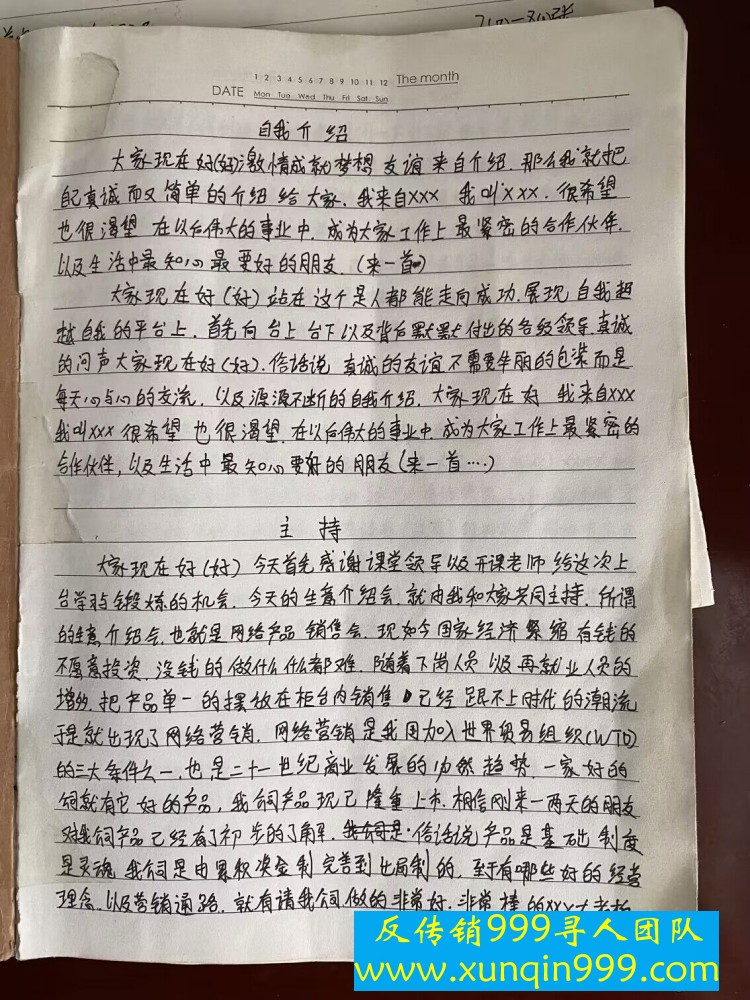 1 2 3 4 5 6 7 8 9 10 11 12 The month
DATE Mon Tue Wed Thu Fri Sat Sun
自我介绍
大家现在好(好)激情成就梦想 友谊来自介绍.那么我就把
自己真诚而又简单的介绍给大家.我来自xxx 我叫xxx.很希望
也很渴望 在以后伟大的事业中.成为大家工作上最紧密的合作伙伴.
以及生活中最知心最要好的朋友.(来一首)
大家现在好(好)站在这个是人都能走向成功.展现自我超
越自我的平台上.首先向台上台下以及背后默默付出的各级领导.真诚
的问声大家现在好(好).俗话说 真诚的友谊不需要华丽的包装而是
每天心与心的交流.以及源源不断的自我介绍.大家现在好 我来自xxx
我叫xxx很希望也很渴望.在以后伟大的事业中.成为大家工作上最紧密的
合作伙伴,以及生活中最知心要好的朋友(来一首....)
主持
大家现在好(好)今天首先感谢课堂领导以及开课老师给这次上
台学习与锻炼的机会.今天的生意介绍会.就由我和大家共同主持.所谓
的生意介绍会.也就是网络产品销售会.现如今国家经济紧缩有钱的
不愿意投资.没钱的做什么什么都难.随着下岗人员以及再就业人员的
增加.把产品单一的摆放在柜台内销售已经跟不上时代的潮流
于是就出现了网络营销.网络营销是我国加入世界贸易组织(WTO)
的三大条件之一.也是二十一世纪商业发展的必然趋势.一家好的
公司就有它好的产品,我公司产品现已隆重上市.相信刚来一两天的朋友
对我公司产品已经有了初步的了解.俗话说产品是基础制度
是灵魂 我公司是由累积奖金制完善到出局制的.至于有哪些好的经营
理念.以及营销通路.就有请我公司做的非常好.非常棒的xxx大老板
反传销999寻人团队
www.xunqin999.com